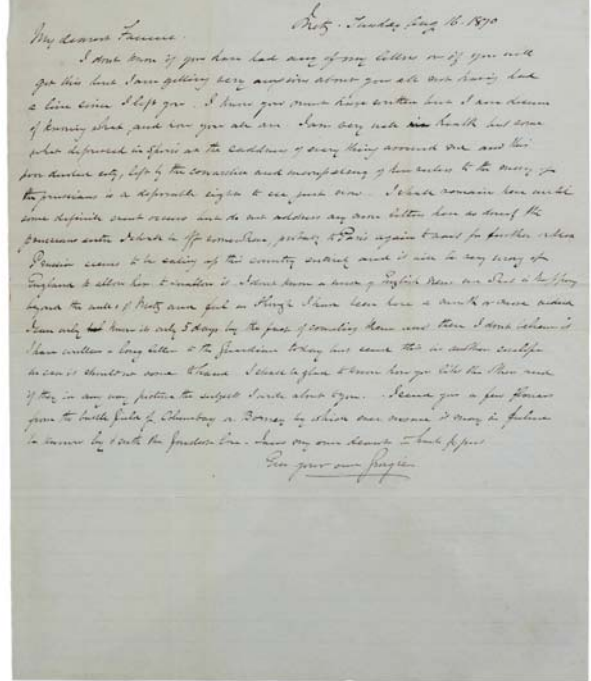 Metz. Tuesday Aug 16. 1870
My dearest Fannie.
I dont know if you have had any of my letters or if you will
get this but I am getting very anxious about you all not having had
a line since I left you. I know you must have written but I am
of knowing what and how you all are. I am very well in health but some
what depressed in spirits at the sadness of every thing around me and this
poor city, left by the and of her rulers to the mercy of
the prussians is a deplorable sight to see just now. I shall remain here until
some definite event occurs but do not address any more letters here as if the
prussians enter I shall be off somewhere, probably to Paris again to wait for further orders
Prussia seems to be eating up this country entirely and it will be very wrong of
England to allow her to I dont know a word of English news or what is happening
beyond the walls of Metz and feel as though I have been here a month or more indeed
I can only know it only 5 days by the fact of counting them and then I dont believe it
I have written a long letter to the Guardian today but send this in another envelope
in case it should not come to hand. I shall be glad to know how you like them and
if they in any way picture the subject I write about to you. I send you a few flowers
from the battle field of or Borney by which name it may in future
be known by with the fondest love.
Ever your own